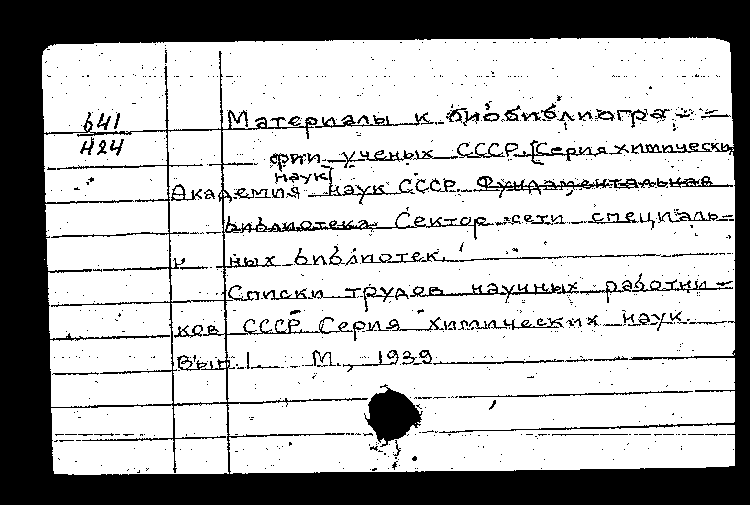 641
424
Материалы к биобиблиогра-
фии ученых СССР. [Серия химически
наук]
Академия наук СССР. Фундаментальная
библиотека. Сектор сети специаль-
ных библиотек.
Списки трудов научных работни-
ков СССР. Серия химических наук.
Вып. 1. М., 1939